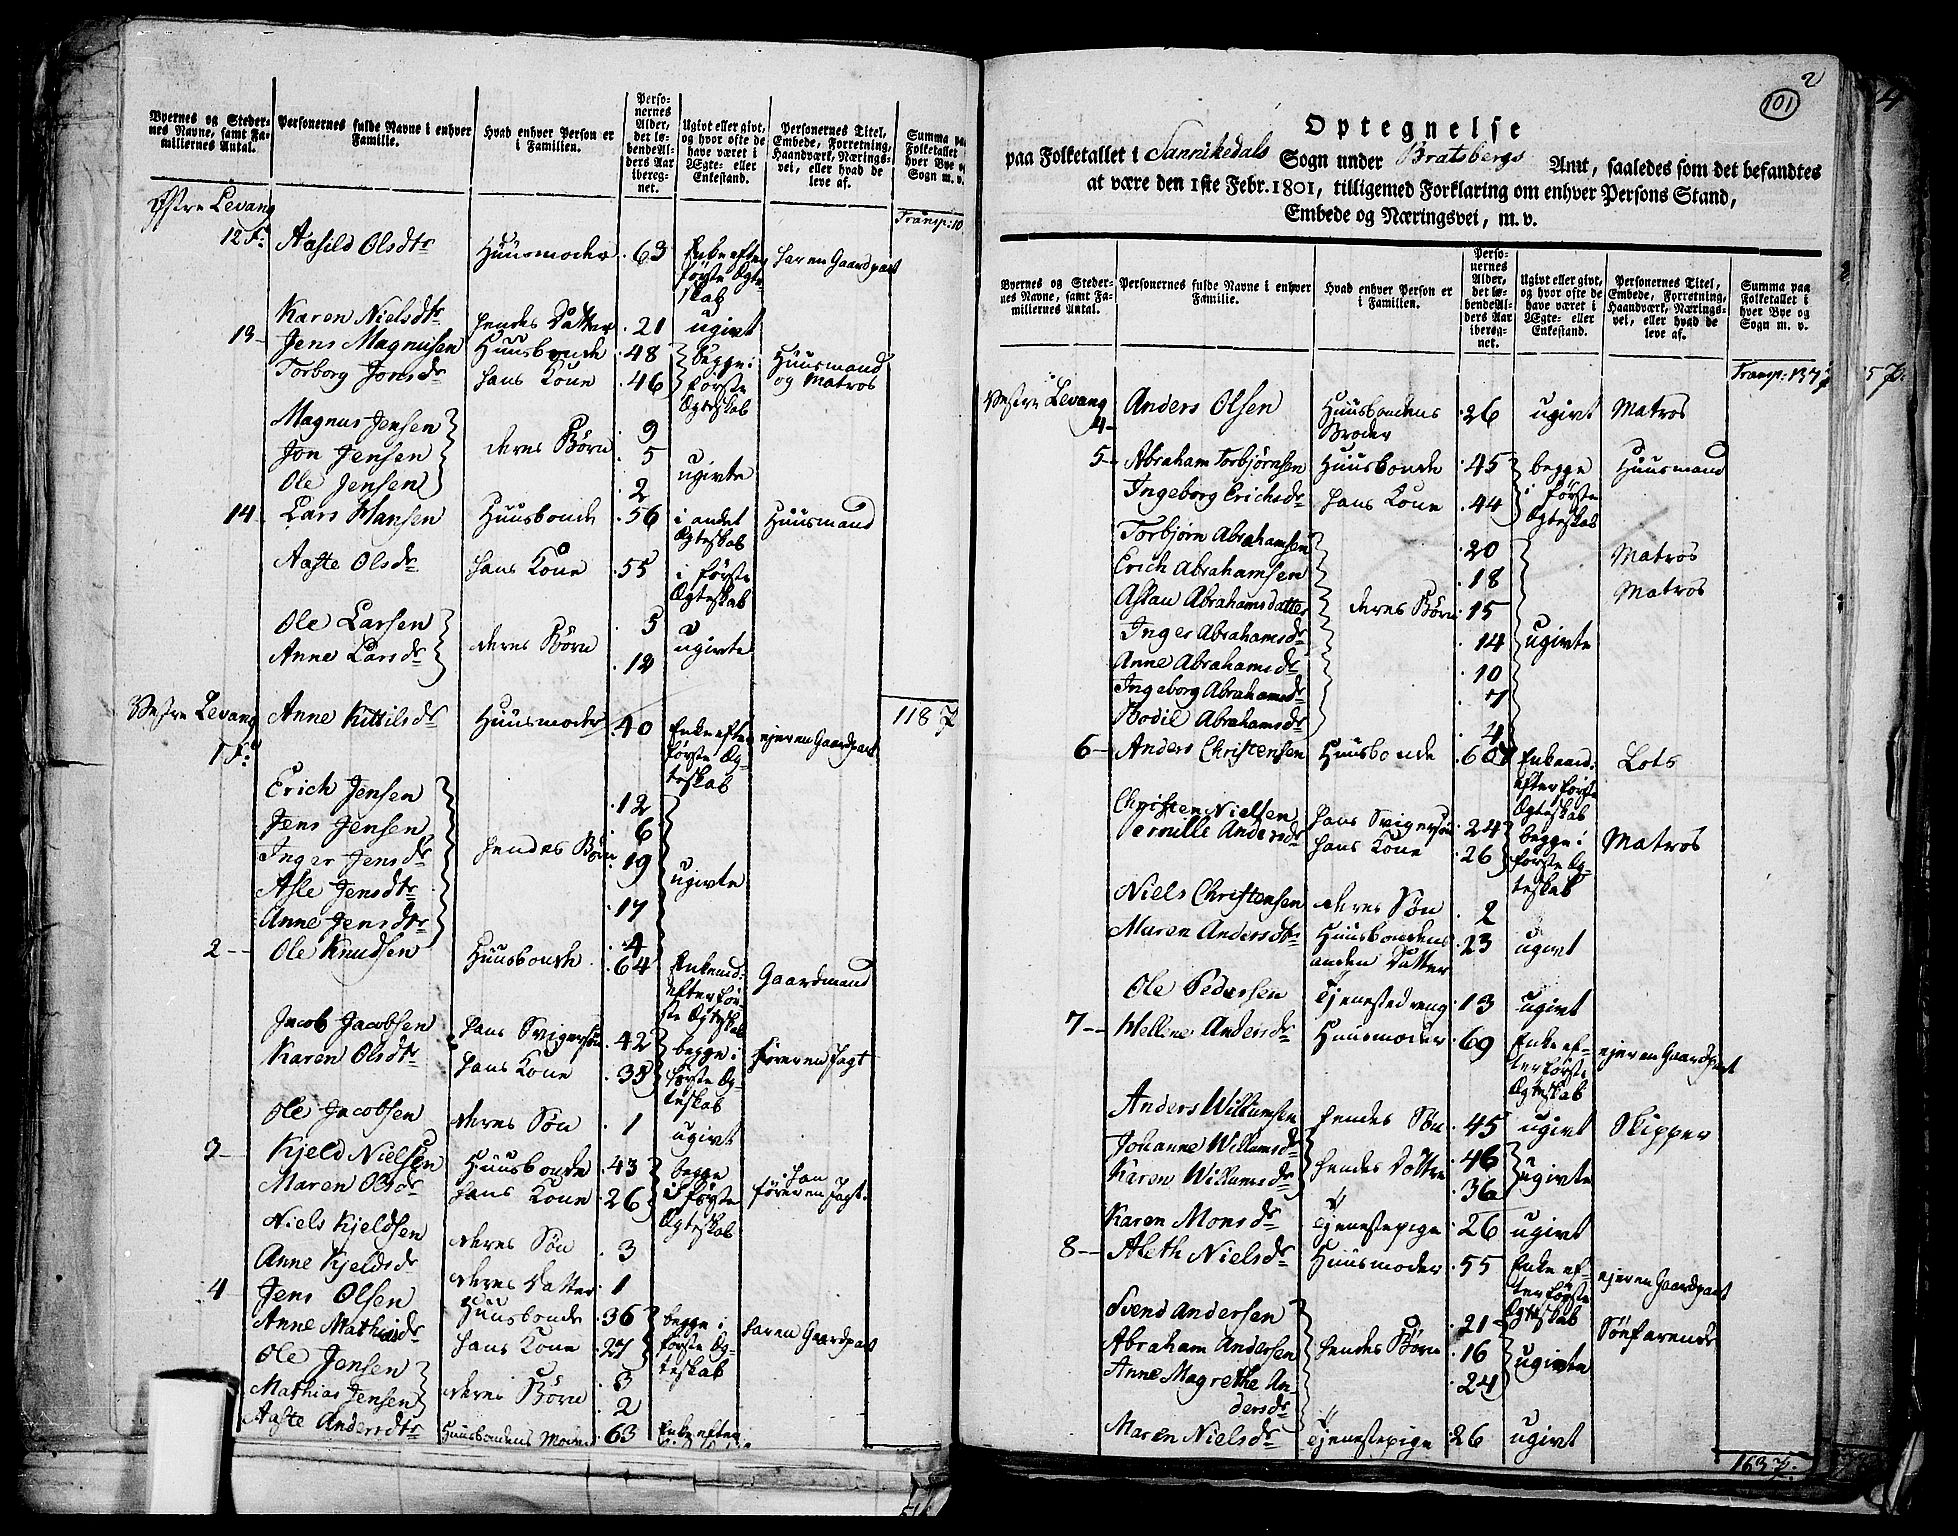 Byernes og Steder-
nes Navne, samt Fa-
miliernes Antal.
Personernes fulde Navne i enhver
Familie.
Hvad enhver Person er
i Familien.
Perso-
nernes
Alder,
det lø-
bende Al-
ders Aar
ibereg-
net.
Ugivt eller givt,
og hvor ofte de
have været i
Ægte- eller
Enkestand.
Personernes Titel,
Embede, Forretning,
Haandværk, Nærings-
vei, eller hvad de
leve af.
Summa paa
Folketallet i
hver Bye og
Sogn m. v.
Østre Levang
12 F. Aasild Olsdtr Huusmoder 63 Enke efter første Ægteskab har en Gaardpart
Karen Nielsdtr hendes Datter 21 ugivt
13 Jens Magnusen Huusbonde 48 begge i første Ægteskab Huusmand og Matros
Torborg Jonsdr hans Kone 46
Magnus Jensen deres Børn 9 ugivte
Jon Jensen 5
Ole Jensen 2
14 Lars Hansen Huusbonde 56 i andet Ægteskab Huusmand
Aaste Olsdr hans Kone 55 i første Ægteskab
Ole Larsen deres Børn 5 ugivte
Anne Larsdr 12
118
Vestre Levang
1 F. Anne Kittilsdr Huusmoder 40 Enke efter første Ægteskab ejer en Gaardpart
Erich Jensen hendes Børn 12 ugivte
Jens Jensen 6
Inger Jensdr 19
Asle Jensdtr 17
Anne Jensdtr 4
2 Ole Knudsen Huusbonde 64 Enkemd: efter første Ægteskab Gaardmand
Jacob Jacobsen hans Svigersøn 42 begge i første Ægteskab fører en Jagt
Karen Olsdtr hans Kone 38
Ole Jacobsen deres Søn 1 ugivt
3 Kjeld Nielsen Huusbonde 43 begge i første Ægteskab han fører en Jagt
Maren Olsdr hans Kone 26
Niels Kjeldsen deres Søn 3
Anne Kjeldsdr deres Datter 1
4 Jens Olsen Huusbonde 36 begge i første Ægteskab har en Gaardpart
Anne Mathisdr hans Kone 27
Ole Jensen deres Børn 3
Mathias Jensen 2
Aaste Andersdtr Huusbondens Moder 63 Enke efter
2
101
Optegnelse
paa Folketallet i Sannikedals Sogn under Bratsbergs Amt, saaledes som det befandtes
at være den 1ste Febr. 1801, tilligemed Forklaring om enhver Persons Stand,
Embede og Næringsvei, m. v.
Byernes og Steder-
nes Navne, samt Fa-
miliernes Antal.
Personernes fulde Navne i enhver
Familie.
Hvad enhver Person er
i Familien.
Perso-
nernes
Alder,
det lø-
bende Al-
ders Aar
ibereg-
net.
Ugivt eller givt,
og hvor ofte de
have været i
Ægte- eller
Enkestand.
Personernes Titel,
Embede, Forretning,
Haandværk, Nærings-
vei, eller hvad de
leve af.
Summa paa
Folketallet i
hver Bye og
Sogn m. v.
Vestre Levang
4 Anders Olsen Huusbondens Broder 26 ugivt Matros
5 Abraham Torbjørnsen Huusbonde 45 begge i første Ægteskab Huusmand
Ingeborg Erichsdr hans Kone 44
Torbjørn Abrahamsen deres Børn 20 ugivte Matros
Erich Abrahamsen 18 Matros
Aslau Abrahamsdatter 15
Inger Abrahamsdr 14
Anne Abrahamsdr 10
Ingeborg Abrahamsdr 7
Bodil Abrahamsdr 4
6 Anders Christensen Huusbonde 60 Enkemd: efter første Ægteskab Lots
Christen Nielsen hans Svigersøn 24 begge i første Ægteskab Matros
Pernille Andersdr hans Kone 26
Niels Christensen deres Søn 2
Maren Andersdtr Huusbondens anden Datter 23 ugivt
Ole Pedersen Tjenestedreng 13 ugivt
7 Helline Andersdr Huusmoder 69 Enke efter første Ægteskab ejer en Gaardpart
Anders Willumsen hendes Søn 45 ugivt Skipper
Johanne Willumsdr hendes Døttre 46 ugivte
Karen Willumsdr 36
Karen Monsdr Tjenestepige 26 ugivt
8 Aleth Nielsdr Huusmoder 55 Enke efter første Ægteskab ejer en Gaardpart
Svend Andersen hendes Børn 21 ugivte Søefarende
Abraham Andersen 16
Anne Magrethe Andersdr 24
Maren Nielsdr Tjenestepige 26 ugivt
163